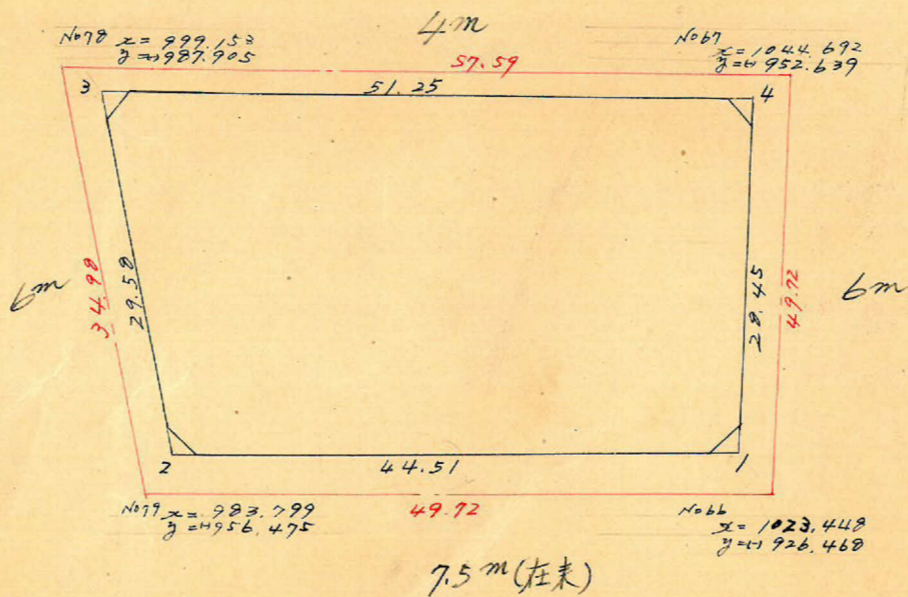 4m
No78 x= 999.153
y=(-)987.905
No67
x=1044.692
y=(-)952.639
57.59
3
51.25
4
6m
34.98
29.58
28.45
49.72
6m
2
44.51
1
No79 x=983.799
y=(-)956.475
49.72
No66
x=1023.448
y=(-)926.468
7.5m(在来)